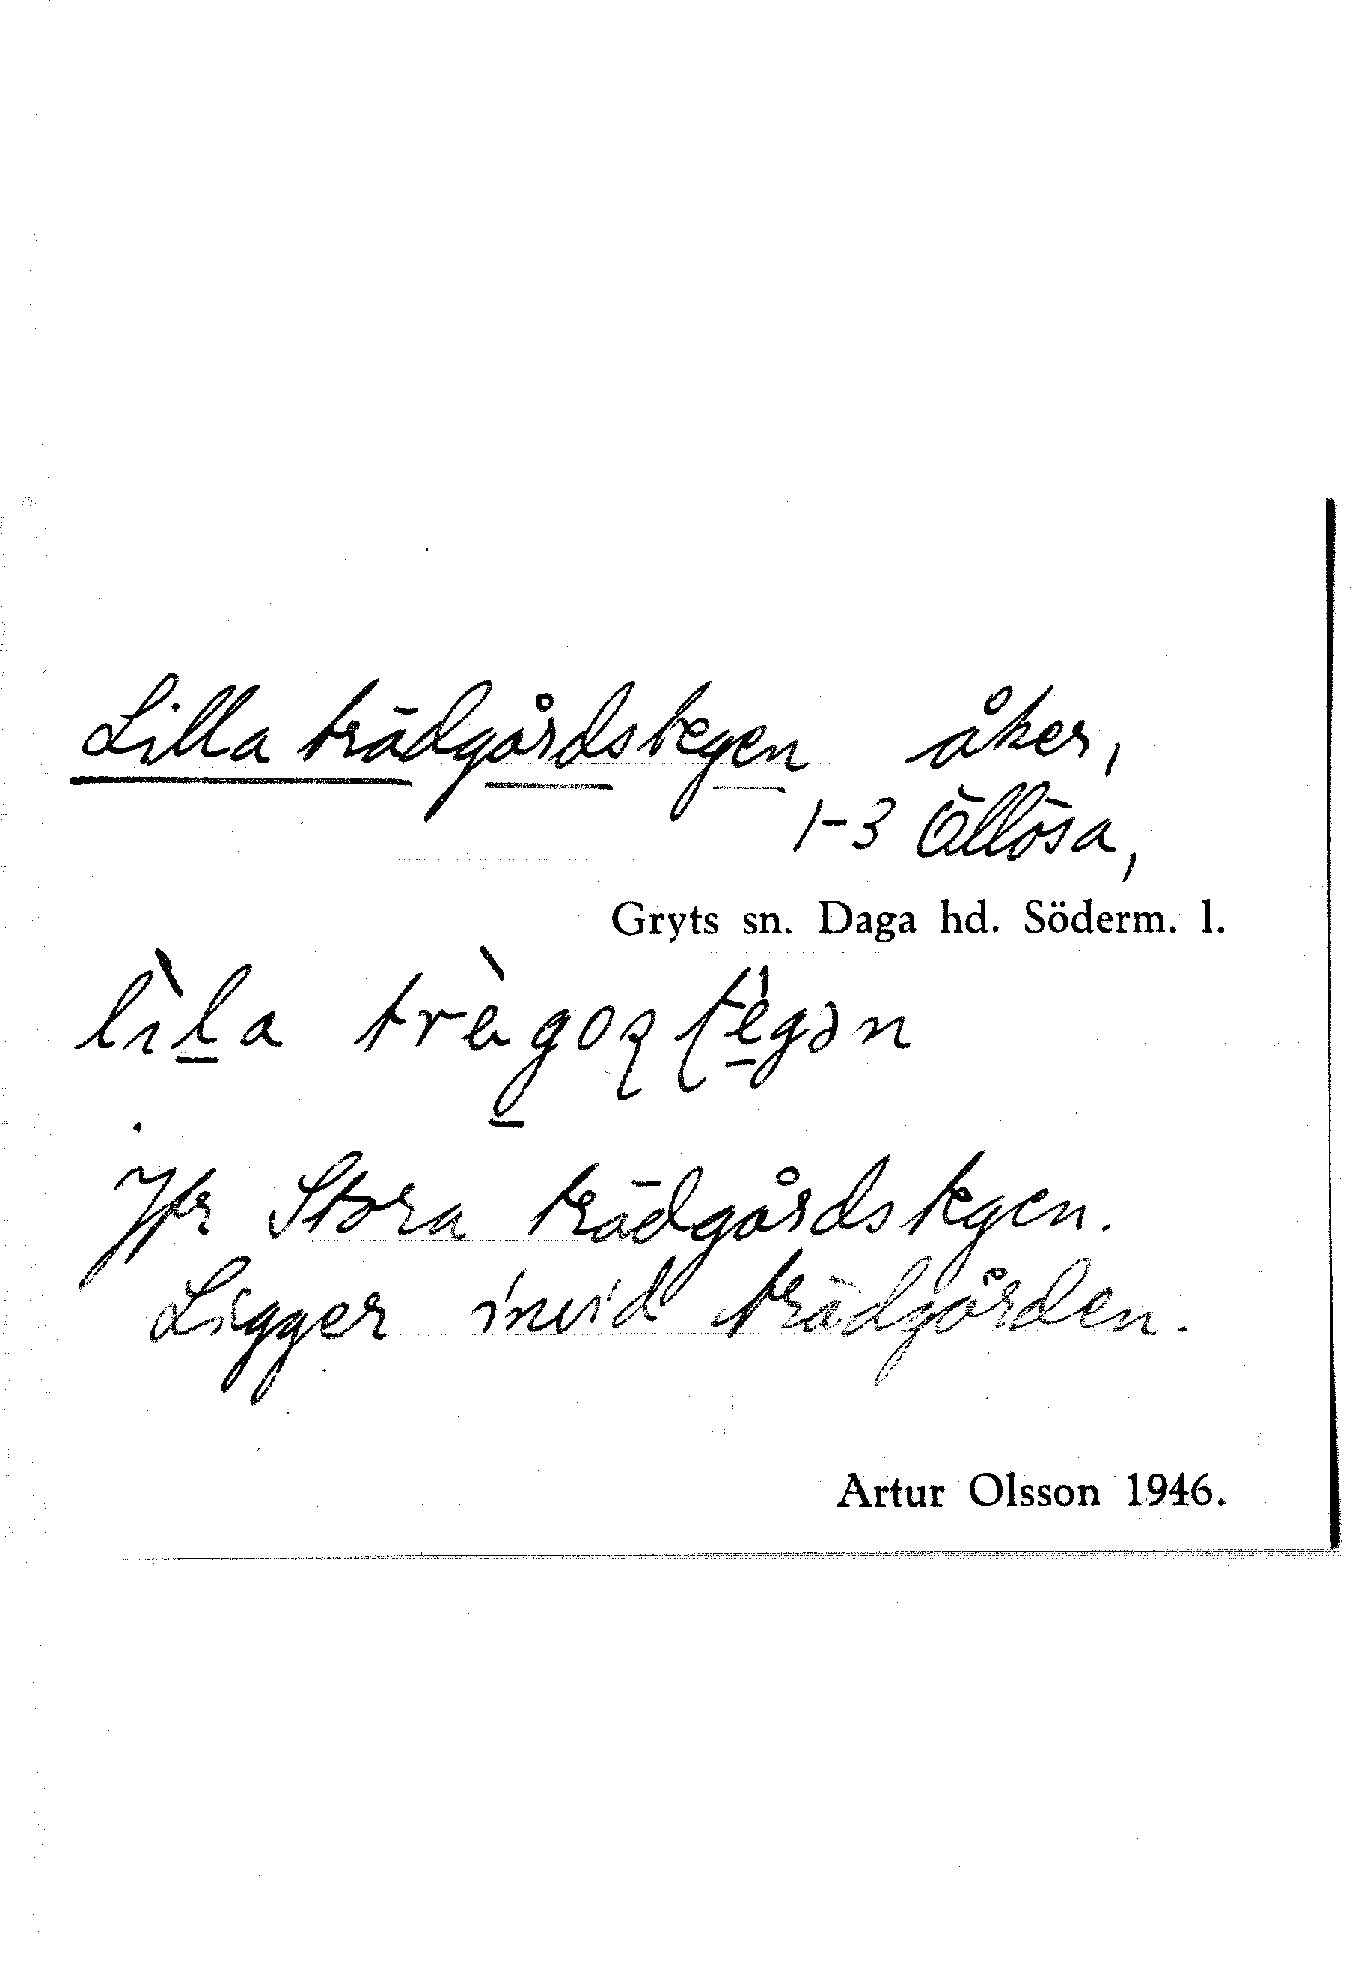 Lilla trädgårdstegen åker,
1-3 Ällösa,
Gryts sn. Daga hd. Söderm. l.
lìla
Jfr Stora trädgårdstegen.
Ligger invid trädgården.
Artur Olsson 1946.